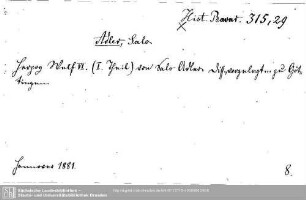 Hist. Bavar. 315,29
Adler, Salo.
Herzog Welf VI. (I. Theil) von Salo Adler. Diss. vorgelegt zu Göt-
tingen.
Hannover 1881.
8.
Sächsische Landesbibliothek -
Staats- und Universitätsbibliothek Dresden